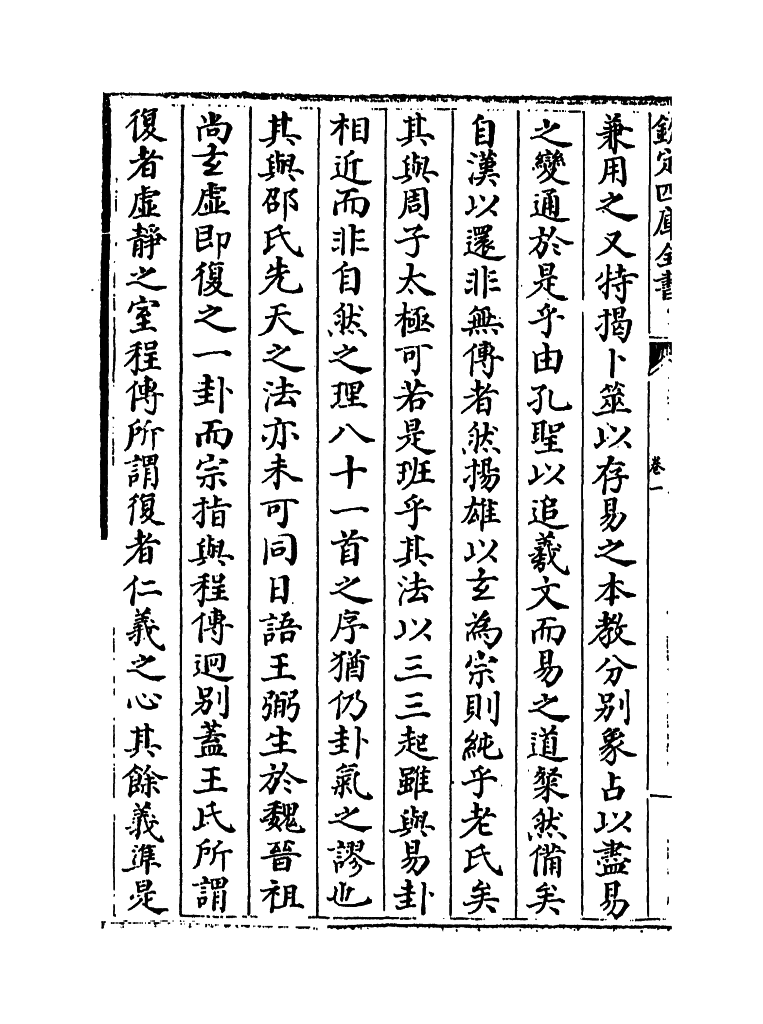 欽定四庫全書
卷一
兼用之又特揭卜筮以存易之本教分别象占以盡易
之變通於是乎由孔聖以追羲文而易之道粲然備矣
自漢以還非無傳者然揚雄以玄為宗則純乎老氏矣
其與周子太極可若是班乎其法以三三起雖與易卦
相近而非自然之理八十一首之序猶仍卦氣之謬也
其與邵氏先天之法亦未可同日語王弼生於魏晉祖
尚玄虛即復之一卦而宗指與程傳迥别蓋王氏所謂
復者虛靜之室程傳所謂復者仁義之心其餘義準是